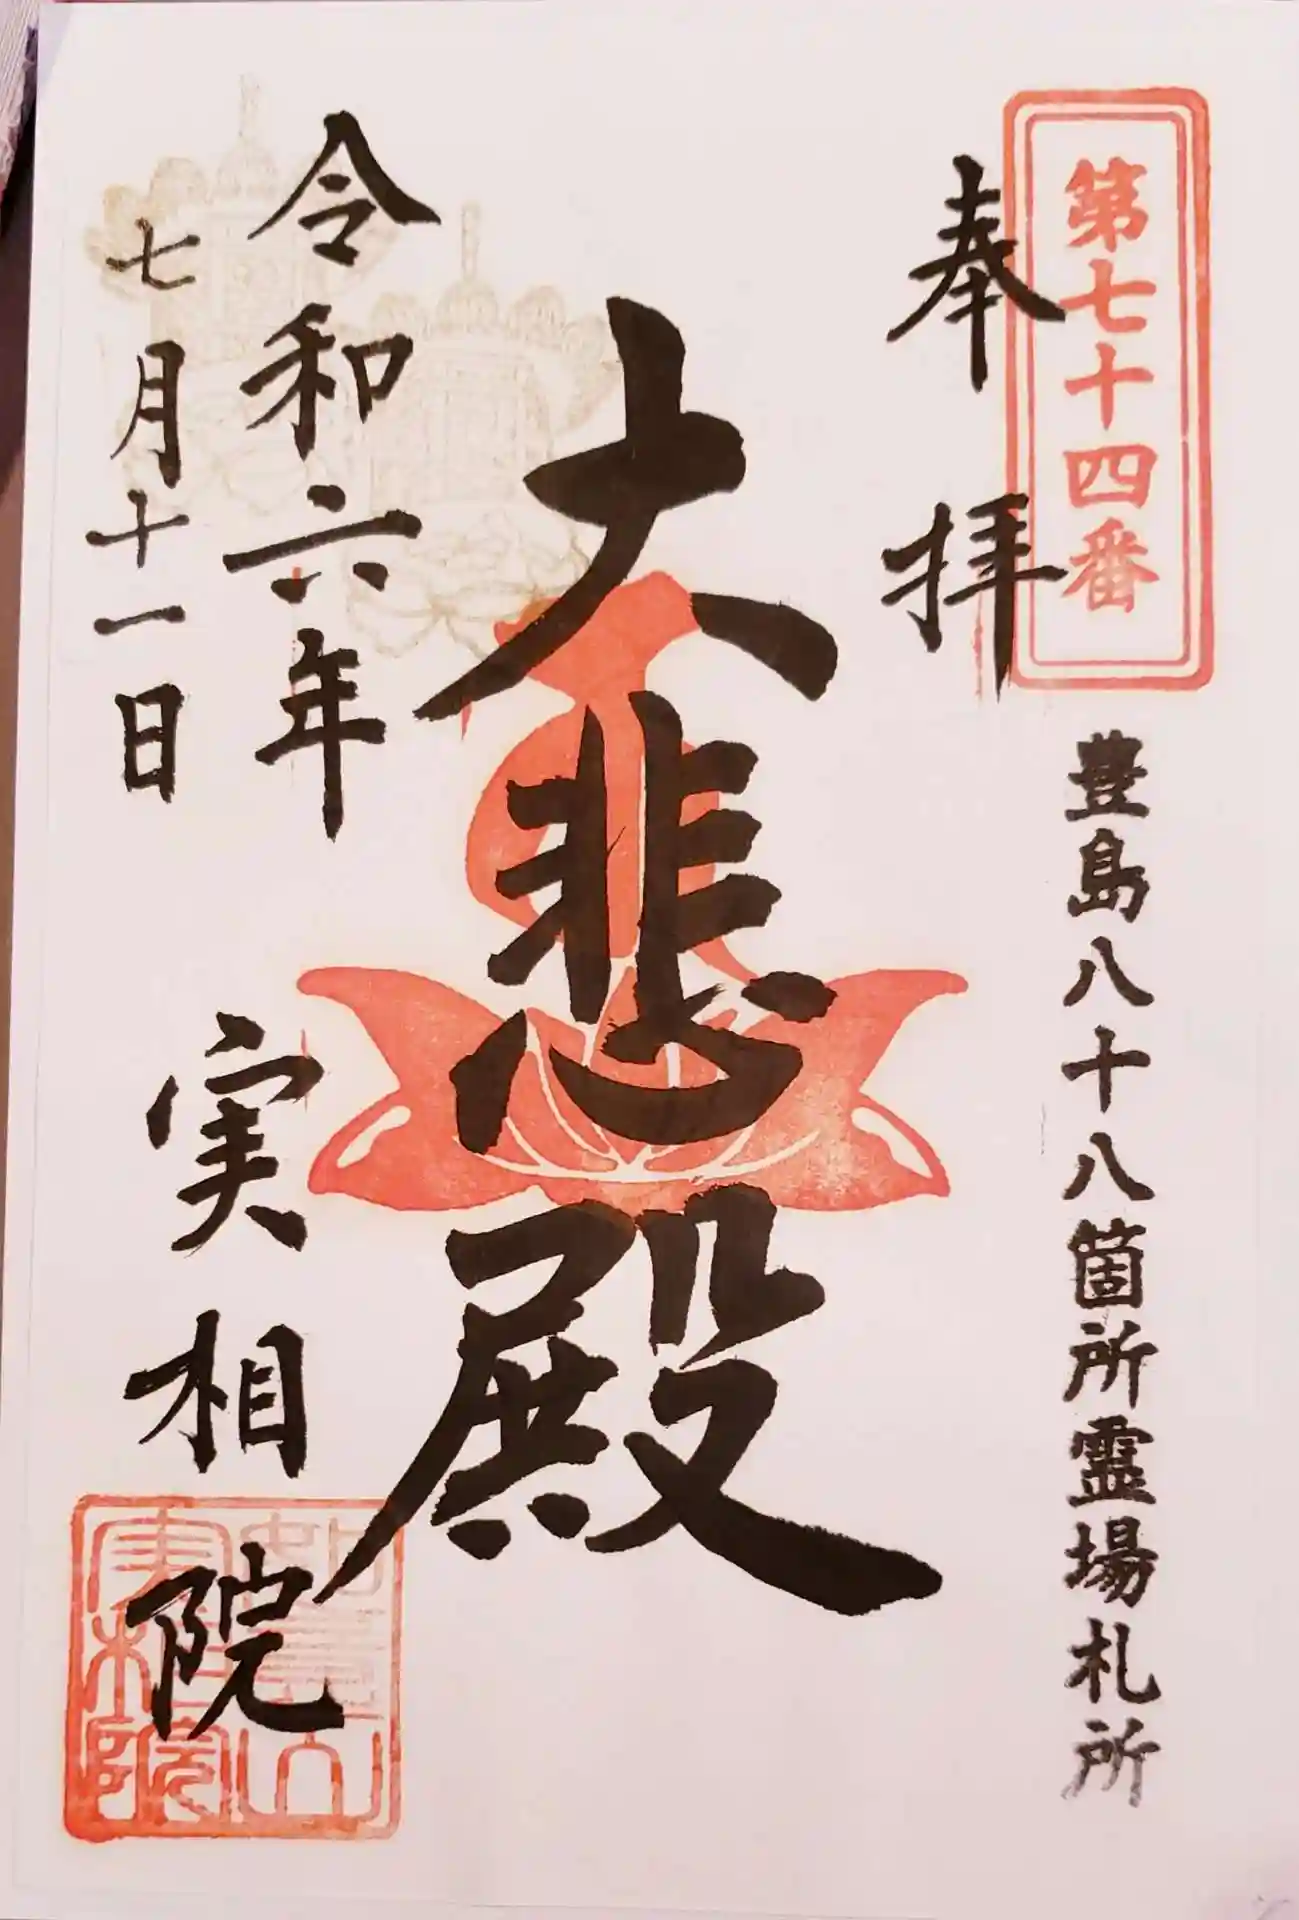 第七十四番
豊島八十八箇所霊場札所
奉拝
大悲殿
令和六年
七月十一日
実相院
実相院